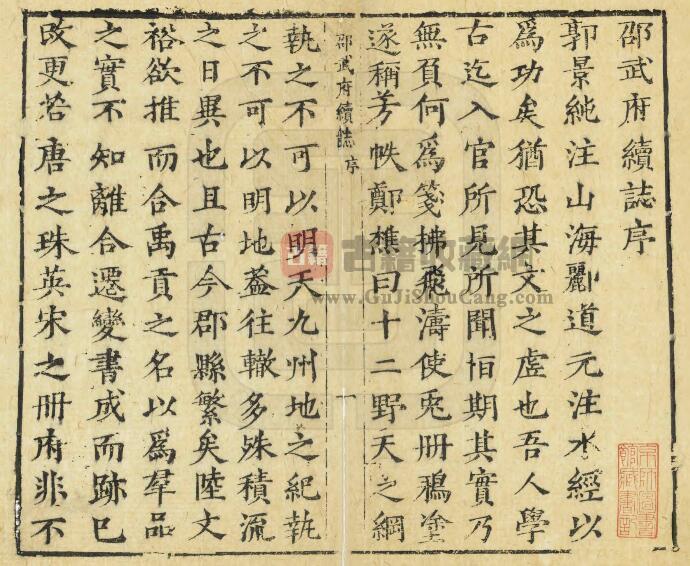 邵武府續誌序
郭景純注山海酈道元注水經以
爲功矣猶恐其文之虛也吾人學
古迄入官所見所聞怕期其實乃
無頁何爲箋拂飛濤使兎册鴉塗
遂稱芳帙鄭樵曰十二野天之綱
邵武府續誌 序
一
執之不可以明天九州地之紀執
之不可以明地葢往轍多殊積流
之日異也且古今郡縣繁矣陸文
裕欲推而合禹貢之名以爲羣品
之實不知離合遷變書成而跡已
改更若唐之珠英宋之册府非不
古籍 古籍收藏網
www.GuJiShouCang.com